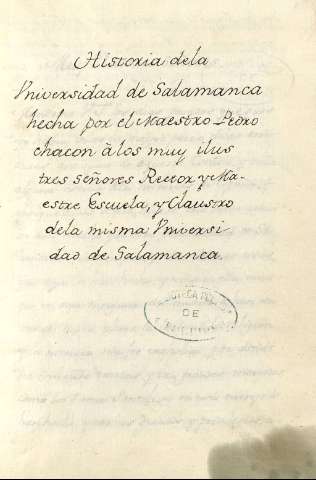 Historia dela
Vniversidad de Salamanca
hecha por el Maestro Pedro
chacon à los muy ilus
tres señores Rector y Ma-
estre Escuela, y Claustro
dela misma Vniversi
dad de Salamanca.
DE